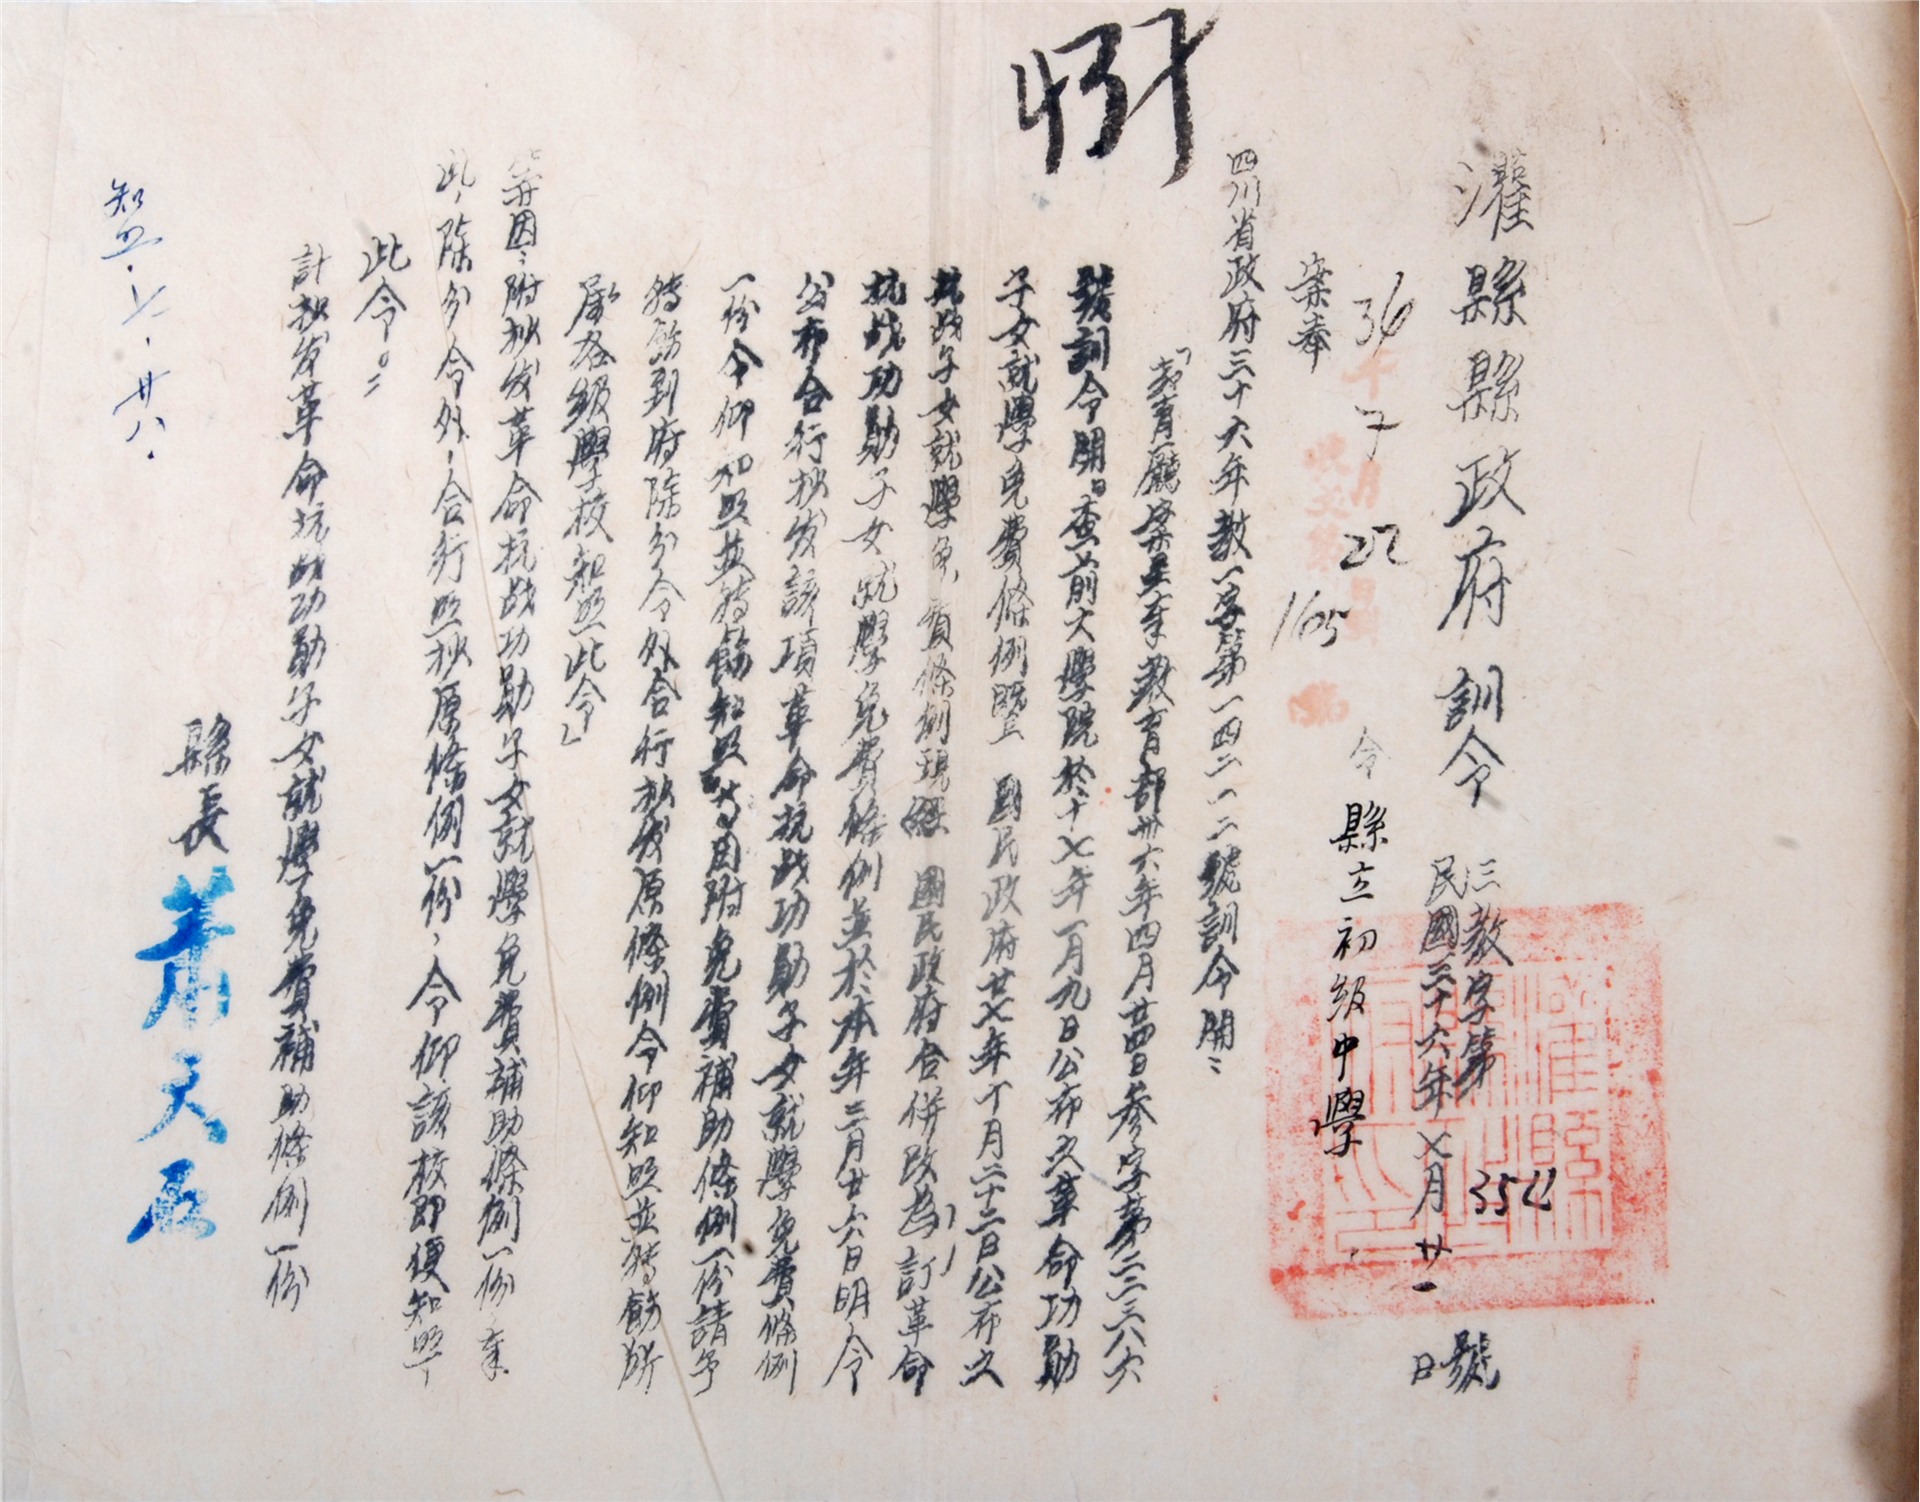 灌縣縣政府訓令
三教字第354號
民國三十六年七月廿一日
令縣立初級中學
36 7 22
1105
案奉
四川省政府三十六年教一字第一四二一二號訓令開：
「教育廳案呈奉教育部卅六年四月廿四日參字第二二三八六
號訓令開「查前大學院於十七年一月九日公布之革命功勛
子女就學免費條例暨 國民政府廿七年十月二十二日公布之
抗战子女就學免費條例現經 國民政府合併改為訂革命
抗战功勛子女就學免費條例並於本年三月廿六日明令
公布合行抄发該項革命抗战功勛子女就學免費條例
一份令仰知照並转飭知照」等因附免費補助條例一份請予
转飭到府除分令外合行抄发原條例令仰知照並转飭所
屬各級學校知照此令」
等因：附抄发革命抗战功勛子女就學免費補助條例一份奉
此，除分令外，合行照抄原條例一份，令仰該校即便知照
此令。
計抄发革命抗战功勛子女就學免費補助條例一份
縣長蕭天石
知照．七．廿八．